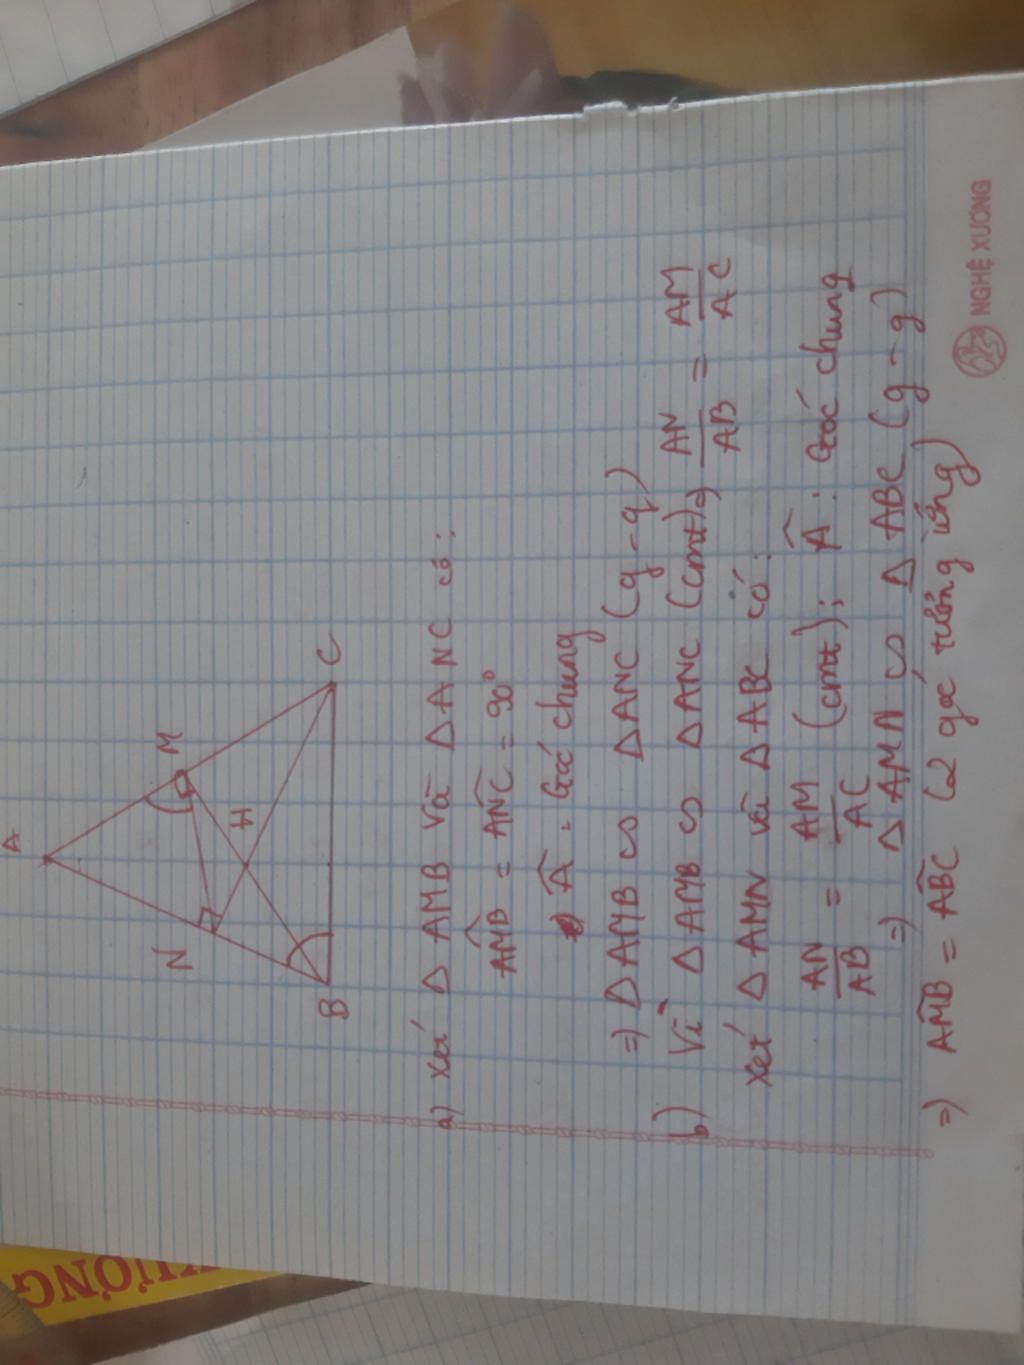 A
N
M
H
B
C
a) Xét Δ AMB và Δ ANC có :
AMB̂ = ANĈ = 90°
Â : Góc chung
=) Δ AMB ᔕ Δ ANC (g-g)
b) Vì Δ AMB ᔕ Δ ANC (cmt) =) AN/AB = AM/AC
Xét Δ AMN và Δ ABC có :
AN/AB = AM/AC (cmt) ; Â : Góc chung
=) Δ AMN ᔕ Δ ABC (g-g)
=) AMB̂ = ABĈ (2 góc tương ứng)
NGHÊ XƯƠNG
XƯƠNG